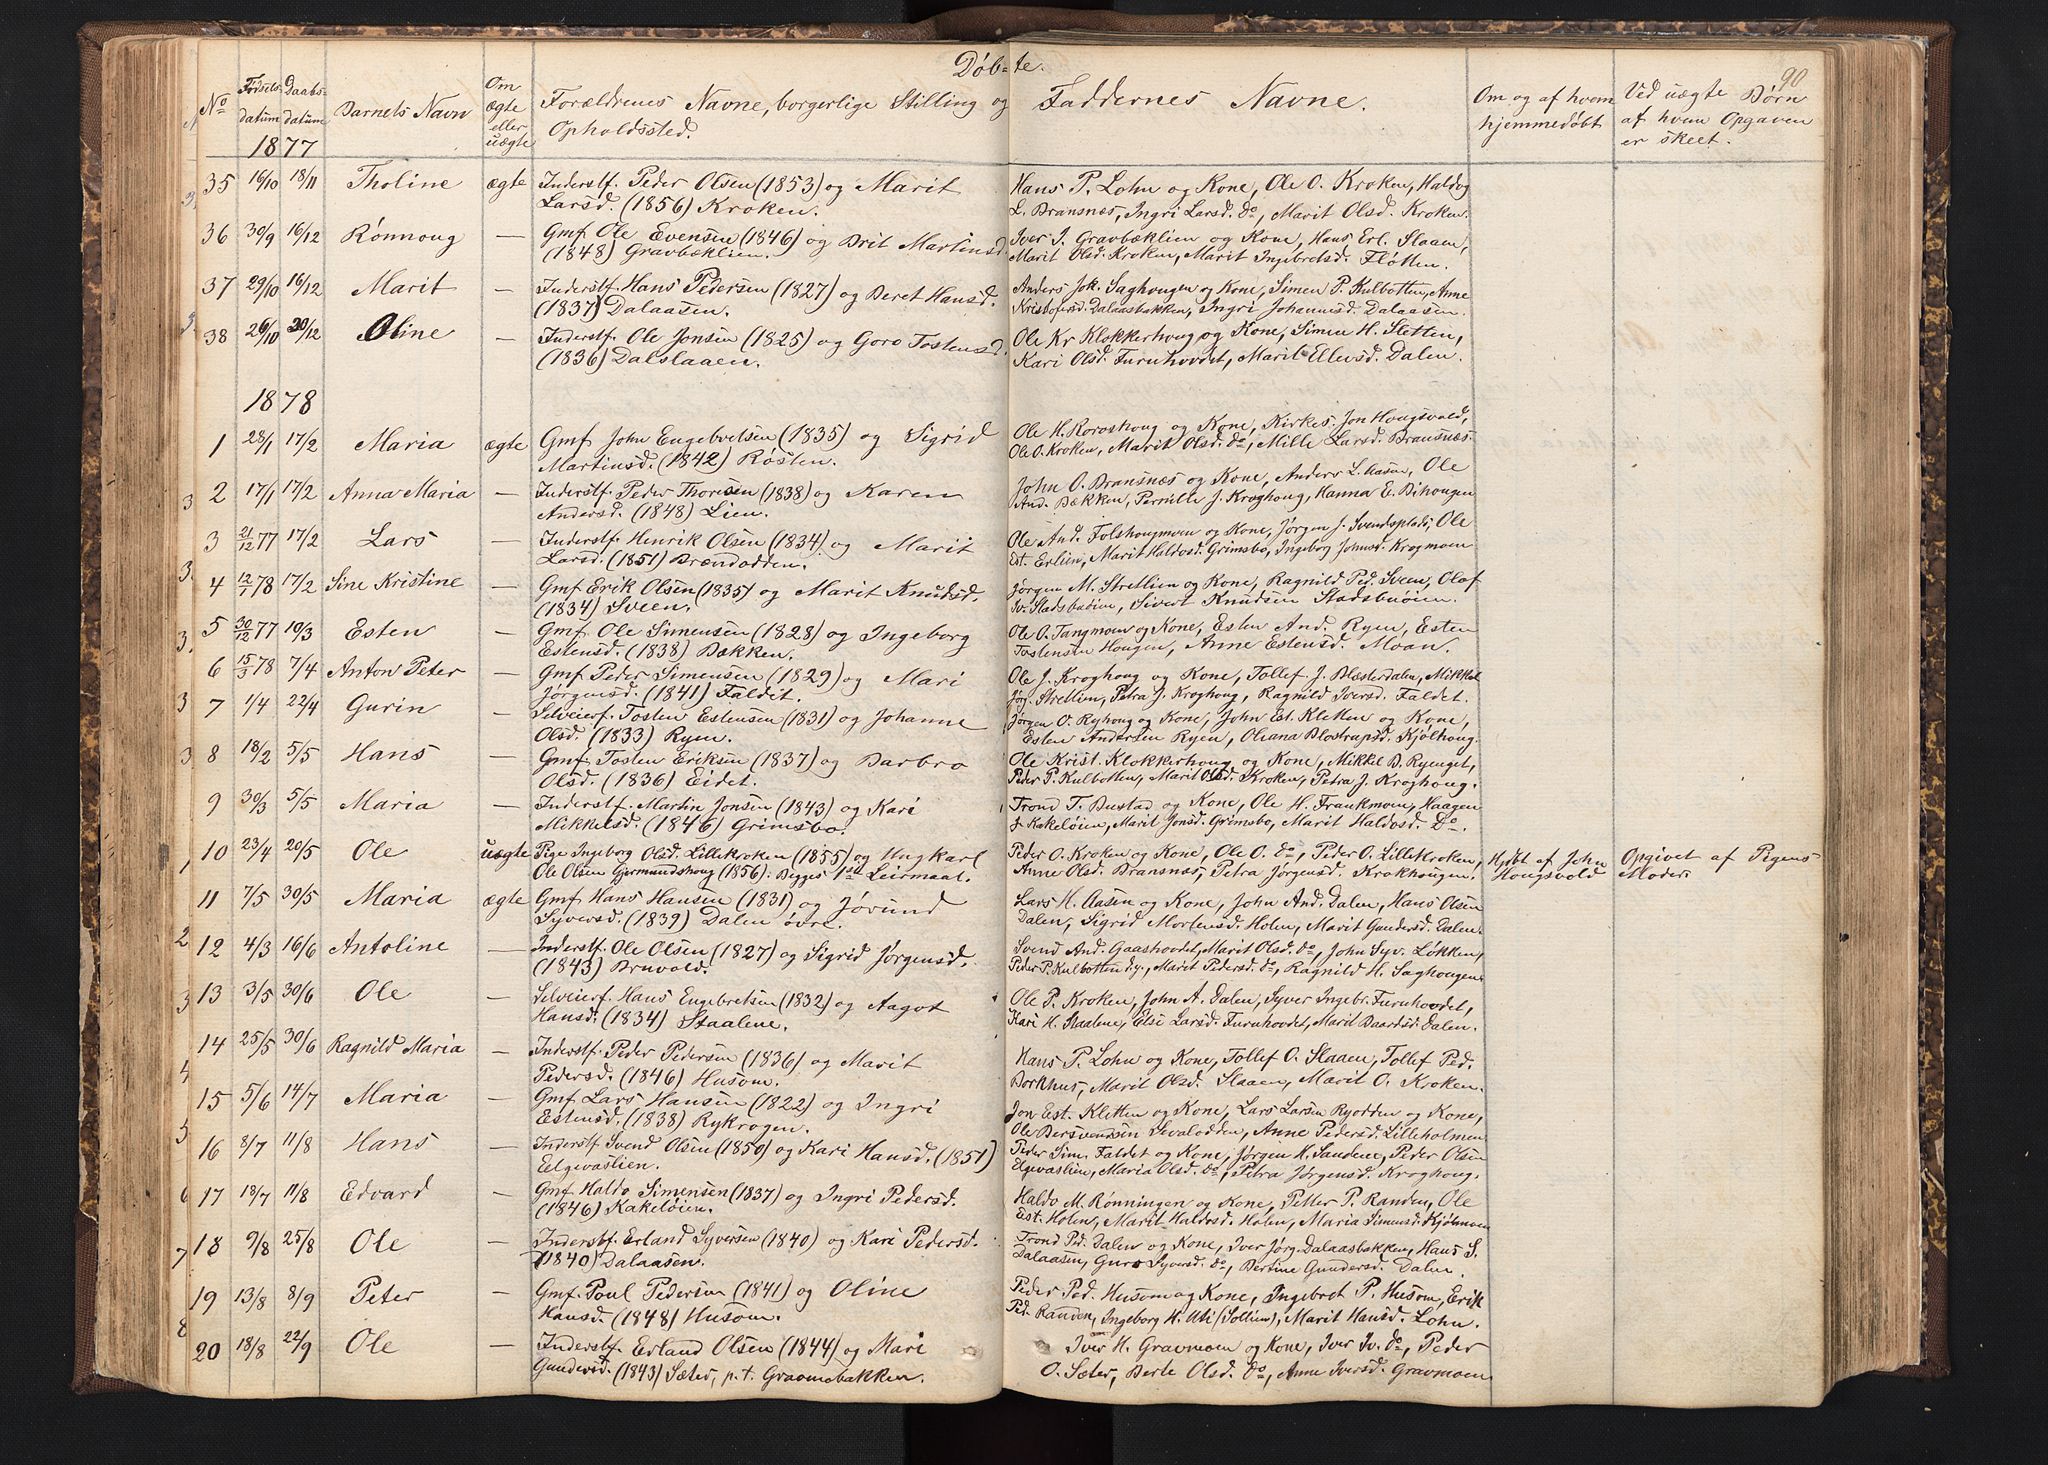 Døb-te.
90
No
Fødsels-datum
Daabs-datum
Barnets Navn
Om ægte eller uægte
Forældrenes Navne, borgerlige Stilling og Opholdssted.
Faddernes Navne.
Om og af hvem hjemmedøbt
Ved uægte Børn af hvem Opgaven er skeet.
1877
35 16/10 18/11 Tholine ægte Inderstf. Peder Olsen (1853) og Marit Hans P. Lohn og Kone, Ole O. Kroken, Haldog
Larsd. (1856) Kroken. L. Bransnæs, Ingri Larsd. do, Marit Olsd. Kroken.
36 30/9 16/12 Rønnoug — Gmf. Ole Evensen (1846) og Brit Martinsd. Iver J. Gravbæklien og Kone, Hans Erl. Slaaen,
(1848) Gravbæklien. Marit Olsd. Kroken, Marit Ingebretsd. Fløtten.
37 29/10 16/12 Marit — Inderstf. Hans Pedersen (1827) og Beret Hansd. Anders Joh. Saghougen og Kone, Simen P. Kulbotten, Anne
(1837) Dalaasen. Kristofersd. Dalaasbakken, Ingri Johannsd. Dalaasen.
38 26/10 30/12 Oline — Inderstf. Ole Jonsen (1825) og Goro Tostensd. Ole Kr Klokkerhoug og Kone, Simen H. Sletten,
(1836) Dalslaaen. Kari Olsd. Furuhovdet, Marit Ellevsd. Dalen.
1878
1 28/1 17/2 Maria ægte Gmf John Engebretsen (1835) og Sigrid Ole H. Koroshoug og Kone, Kirkes. Jon Hougsvold,
Martinsd. (1842) Røsten. Ole O. Kroken, Marit Olsd. do, Mille Larsd. Bransnæs.
2 17/1 17/2 Anna Maria — Inderstf. Peder Thoresen (1838) og Karen John O. Bransnæs og Kone, Anders L. Aasen, Ole
Andersd. (1848) Lien. And. Bækken, Pernille J. Kroghoug, Hanna E. Bihougen
3 21/12 77 17/2 Lars — Inderstf. Henrik Olsen (1834) og Marit Ole And. Folshougmoen og Kone, Jørgen J. Svendsplads, Ole
Larsd. (1851) Brændodden. Est. Erlien, Marit Haldosd. Grimsbo, Ingeborg Johnsd. Krogmoen
4 12/1 78 17/2 Sine Kristine — Gmf Erik Olsen (1835) og Marit Knudsd. Jørgen M. Strellien og Kone, Ragnild Ped. Sveen, Olaf
(1834) Sveen. Iv. Stadsbuøien, Sivert Knudsen Stadsbuøien.
5 30/12 77 10/3 Esten — Gmf Ole Simensen (1828) og Ingeborg Ole O. Tangmoen og Kone, Esten And. Ryen, Esten
Estensd. (1838) Bækken. Tostensen Hougen, Anne Estensd. Moan.
6 15/3 78 7/4 Anton Peter — Gmf Peder Simensen (1829) og Mari Ole J. Kroghoug og Kone, Tollef J. Blæsterdalen, Mikkel
Jørgensd. (1841) Faldit. Jørg. Strellien, Petra J. Kroghoug, Ragnild Iversd. Faldet.
7 1/4 22/4 Gurin — Selveierf. Tosten Estensen (1831) og Johanne Jørgen O. Ryhoug og Kone, John Est. Kletten og Kone,
Olsd. (1833) Ryen. Esten Andersen Ryen, Oliana Blostrupsd. Kjølhoug.
8 18/2 5/5 Hans — Gmf. Tosten Eriksen (1837) og Barbro Ole Krist. Klokkerhoug og Kone, Mikkel B. Ryenget,
Olsd. (1836) Eidet. Peder P. Kulbotten, Marit Olsd. Kroken, Petra J. Kroghoug.
9 30/3 5/5 Maria — Inderstf. Martin Jonsen (1843) og Kari Trond T. Bustad og Kone, Ole H. Frankmoen, Haagen
Mikkelsd. (1846) Grimsbo. J. Kakeløien, Marit Jonsd. Grimsbo, Marit Haldosd. Do.
10 23/4 20/5 Ole uægte Pige Ingeborg Olsd. Lillekroken (1855) og Ungkarl Peder O. Kroken og Kone, Ole O. do, Peder O. Lillekroken, Hjdbt af John Opgivet af Pigens
Ole Olsen Gjermundshoug (1856). Begges 1ste Leiermaal. Anne Olsd. Bransnæs, Petra Jørgensd. Krokhougen. Hougsvold Moder.
11 7/5 30/5 Maria ægte Gmf Hans Hansen (1831) og Jørund Lars H. Aasen og Kone, John And. Dalen, Hans Olsen
Syversd. (1839) Dalen øvre. Dalen, Sigrid Mortensd. Holen, Marit Gundersd. Dalen.
12 4/3 16/6 Antoline — Inderstf. Ole Olsen (1827) og Sigrid Jørgensd. Svend And. Gaashovdet, Marit Olsd. do, John Syv. Løkken,
(1843) Bruvold. Peder P. Kulbotten dy., Marit Pedersd. do, Ragnild H. Saghougen.
13 3/5 30/6 Ole — Selveierf. Hans Engebretsen (1832) og Aagot Ole P. Kroken, John A. Dalen, Syver Ingebr. Furuhovdet,
Hansd. (1834) Staalene. Kari H. Staalene, Elsi Larsd. Furuhovdet, Marit Baardsd. Dalen.
14 25/5 30/6 Ragnild Maria — Inderstf. Peder Pedersen (1836) og Marit Hans P. Lohn og Kone, Tollef O. Slaaen, Tollef Ped.
Pedersd. (1846) Husom. Borkhus, Marit Olsd. Slaaen, Marit O. Kroken.
15 5/6 14/7 Maria — Gmf Lars Hansen (1822) og Ingri Jon Est. Kletten og Kone, Lars Larsen Ryodden og Kone,
Estensd. (1838) Rykrogen. Ole Bersvendsen Sevalodden, Anne Pedersd. Lilleholmen
16 8/7 11/8 Hans — Inderstf. Svend Olsen (1850) og Kari Hansd. (1851) Peder Sim. Faldet og Kone, Jørgen H. Sandene, Peder Olsen
Elgevaslien. Elgevaslien, Maria Olsd. do, Petra Jørgensd. Kroghoug.
17 13/7 11/8 Edvard — Gmf. Haldo Simensen (1837) og Ingri Pedersd. Haldo M. Rønningen og Kone, Petter P. Randen, Ole
(1846) Kakeløien. Est. Holen, Marit Haldosd. Holen, Maria Simensd. Kjølmoen
18 9/8 25/8 Ole — Inderstf. Erland Syversen (1840) og Kari Pedersd. Trond Ped. Dalen og Kone, Iver Jørg. Dalaasbakken, Hans S.
(1840) Dalaasen. Dalaasen, Guro Syversd. do, Bertine Gundersd. Dalen.
19 13/8 8/9 Peter — Gmf. Poul Pedersen (1841) og Oline Peder Ped. Husom og Kone, Ingebret P. Husom, Erik
Hansd. (1848) Husom. Ped. Randen, Ingeborg H. Uti (Sollien), Marit Hansd. Lohn.
20 18/8 22/9 Ole — Inderstf. Erland Olsen (1844) og Mari Iver H. Gravmoen og Kone, Iver Iv. do, Peder
Gundersd. (1843) Sæter, p.t. Gravmobakken. O. Sæter, Berte Olsd. do, Anne Iversd. Gravmoen